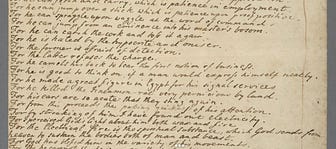 For he can jump over a stick which is patience upon proof positive.
For he can spraggle upon waggle at the word of command.
For he can jump from an eminence into his master's bosom.
For he can catch the cork and toss it again.
For he is hated by the hypocrite and miser.
For the former is affraid of detection.
For the latter refuses the charge.
For he camels his back to bear the first notion of business.
For he is good to think on, if a man would express himself neatly.
For he made a great figure in Egypt for his signal services.
For he killed the Icneumon-rat very pernicious by land.
For his ears are so acute that they sting again.
For from this proceeds the passing quickness of his attention.
For by stroaking of him I have found out electricity.
For I perceived God's light about him both wax and fire.
For the Electrical fire is the spiritual substance, which God sends from
heaven to sustain the bodies both of man and beast.
For God has blessed him in the variety of his movements.